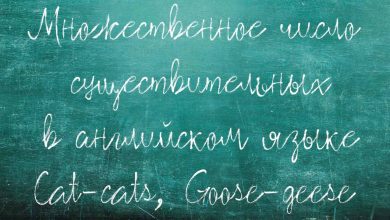 Множественное число
существительных
в английском языке
Cat-cats, Goose-geese